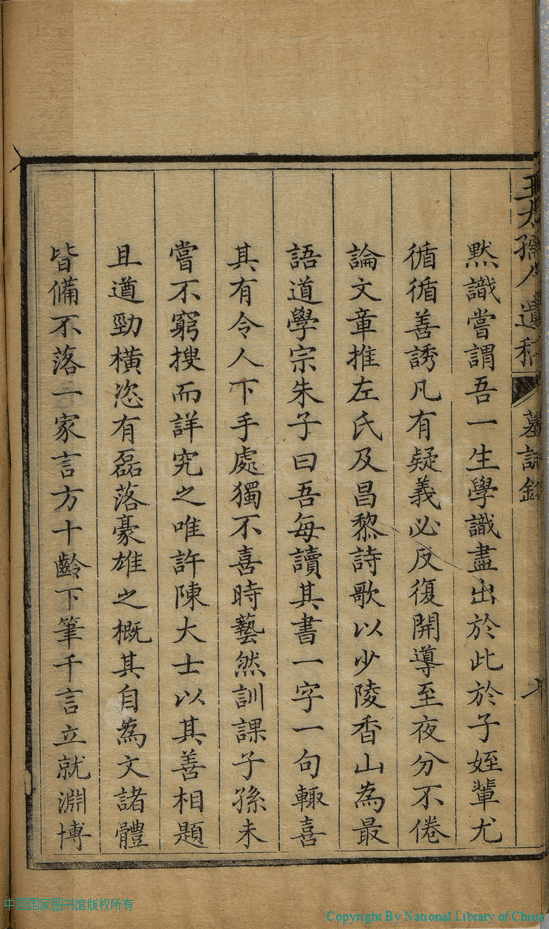 黙識嘗謂吾一生學識盡出於此於子姪輩尤
循循善誘凡有疑義必反復開導至夜分不倦
論文章推左氏及昌黎詩歌以少陵香山為最
語道學宗朱子曰吾每讀其書一字一句輙喜
其有令人下手處獨不喜時藝然訓課子孫未
嘗不窮搜而詳究之唯許陳大士以其善相題
且遒勁橫恣有磊落豪雄之概其自為文諸體
皆備不落一家言方十齡下筆千言立就淵博
中国国家图书馆版权所有
Copyright By National Library of China